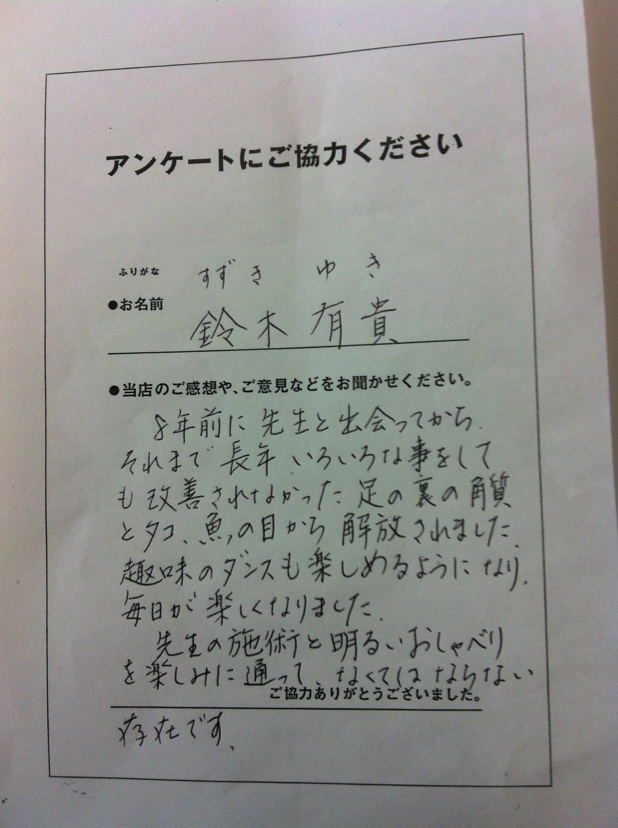 アンケートにご協力ください
ふりがな すずき ゆき
●お名前 鈴木 有貴
●当店のご感想や、ご意見などをお聞かせください。
8年前に先生と出会ってから、
それまで長年いろいろな事をして
も改善されなかった足の裏の角質
とタコ、魚の目から解放されました。
趣味のダンスも楽しめるようになり、
毎日が楽しくなりました。
先生の施術と明るいおしゃべり
を楽しみに通って、なくてはならない
ご協力ありがとうございました。
存在です。